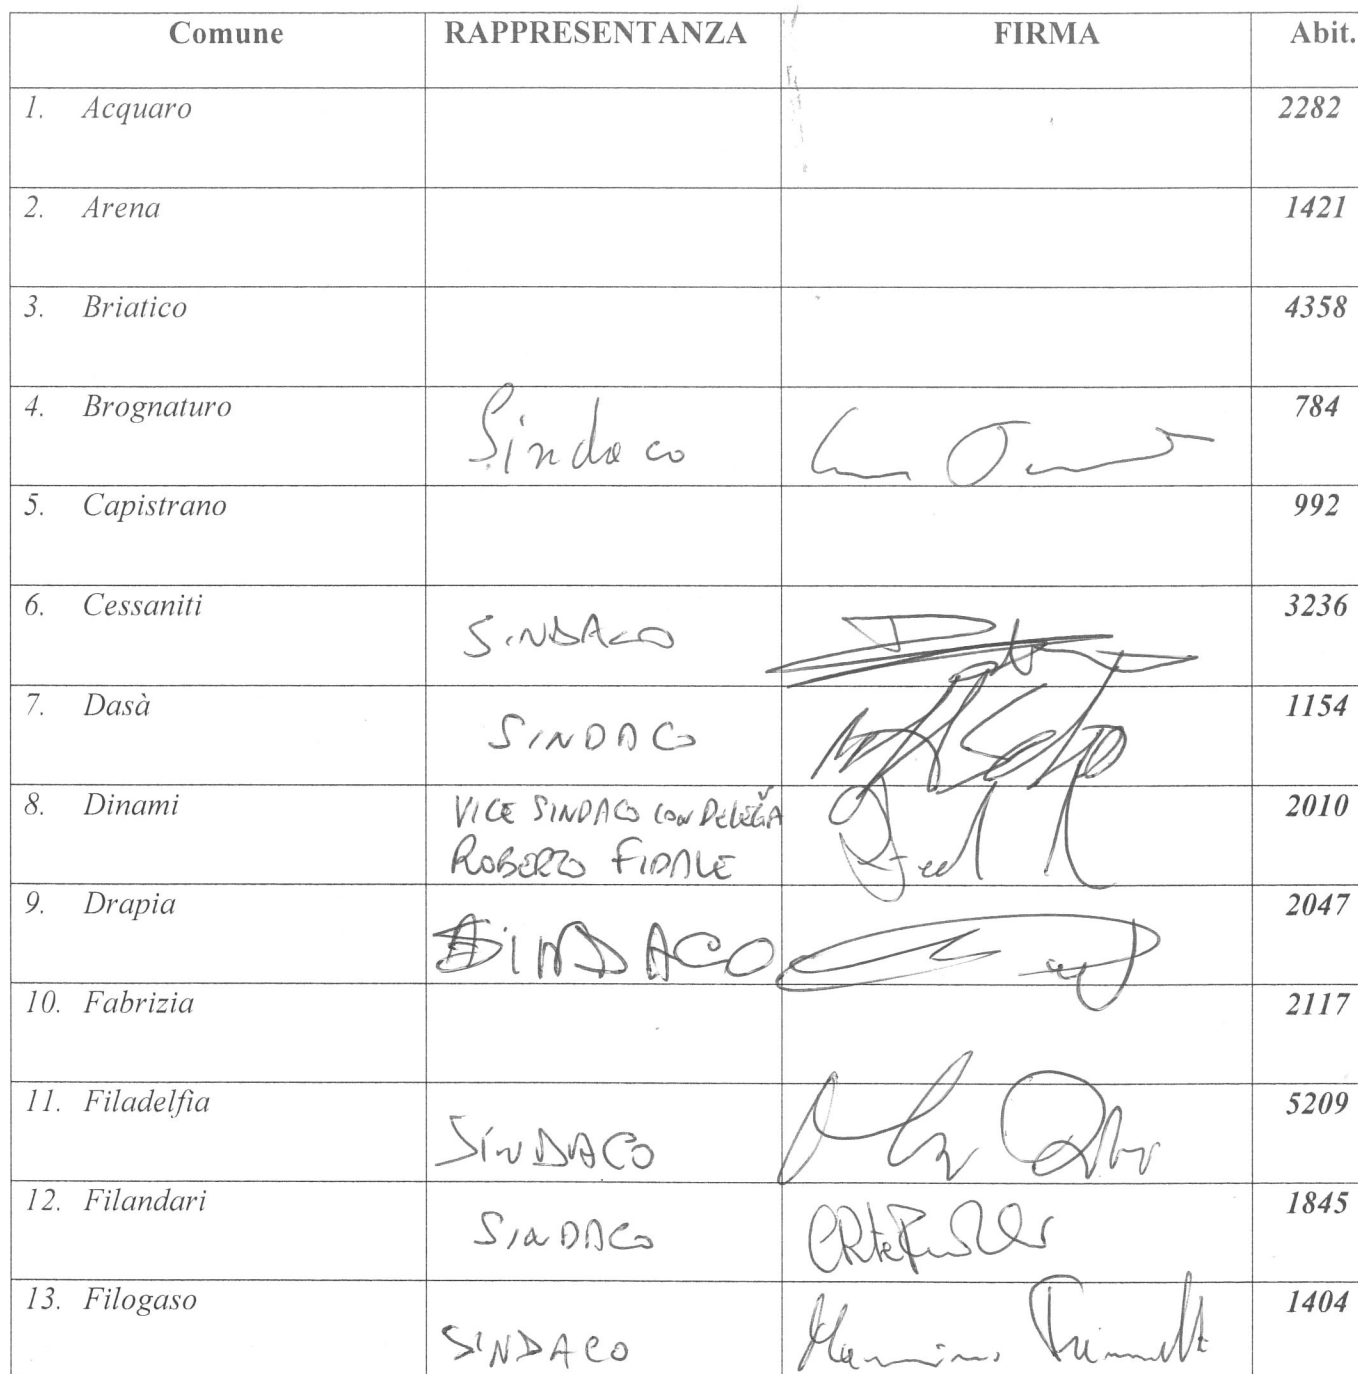 Comune RAPPRESENTANZA FIRMA Abit.
1. Acquaro 2282
2. Arena 1421
3. Briatico 4358
4. Brognaturo Sindaco 784
5. Capistrano 992
6. Cessaniti SINDACO 3236
7. Dasà SINDACO 1154
8. Dinami VICE SINDACO CON DELEGA 2010
ROBERTO FIDALE
9. Drapia SINDACO 2047
10. Fabrizia 2117
11. Filadelfia SINDACO 5209
12. Filandari SINDACO 1845
13. Filogaso SINDACO 1404